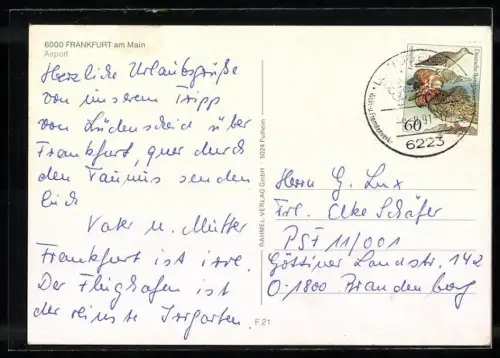 6000 FRANKFURT am Main
Airport
Herzliche Urlaubsgrüße
von unserem Tripp
von Lüdenscheid über
Frankfurt, quer durch
den Taunus senden
Euch
Vater u. Mutter
Frankfurt ist irre.
Der Flughafen ist
der reinste Irrgarten.
RAHMEL-VERLAG GmbH · 5024 Pulheim
F 21
60
91
6223
Herrn G. Lux
Frl. Elke Schäfer
PSF 11/001
Göttiner Landstr. 142
O-1800 Brandenburg